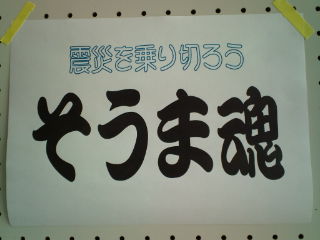 震災を乗り切ろう
そうま魂